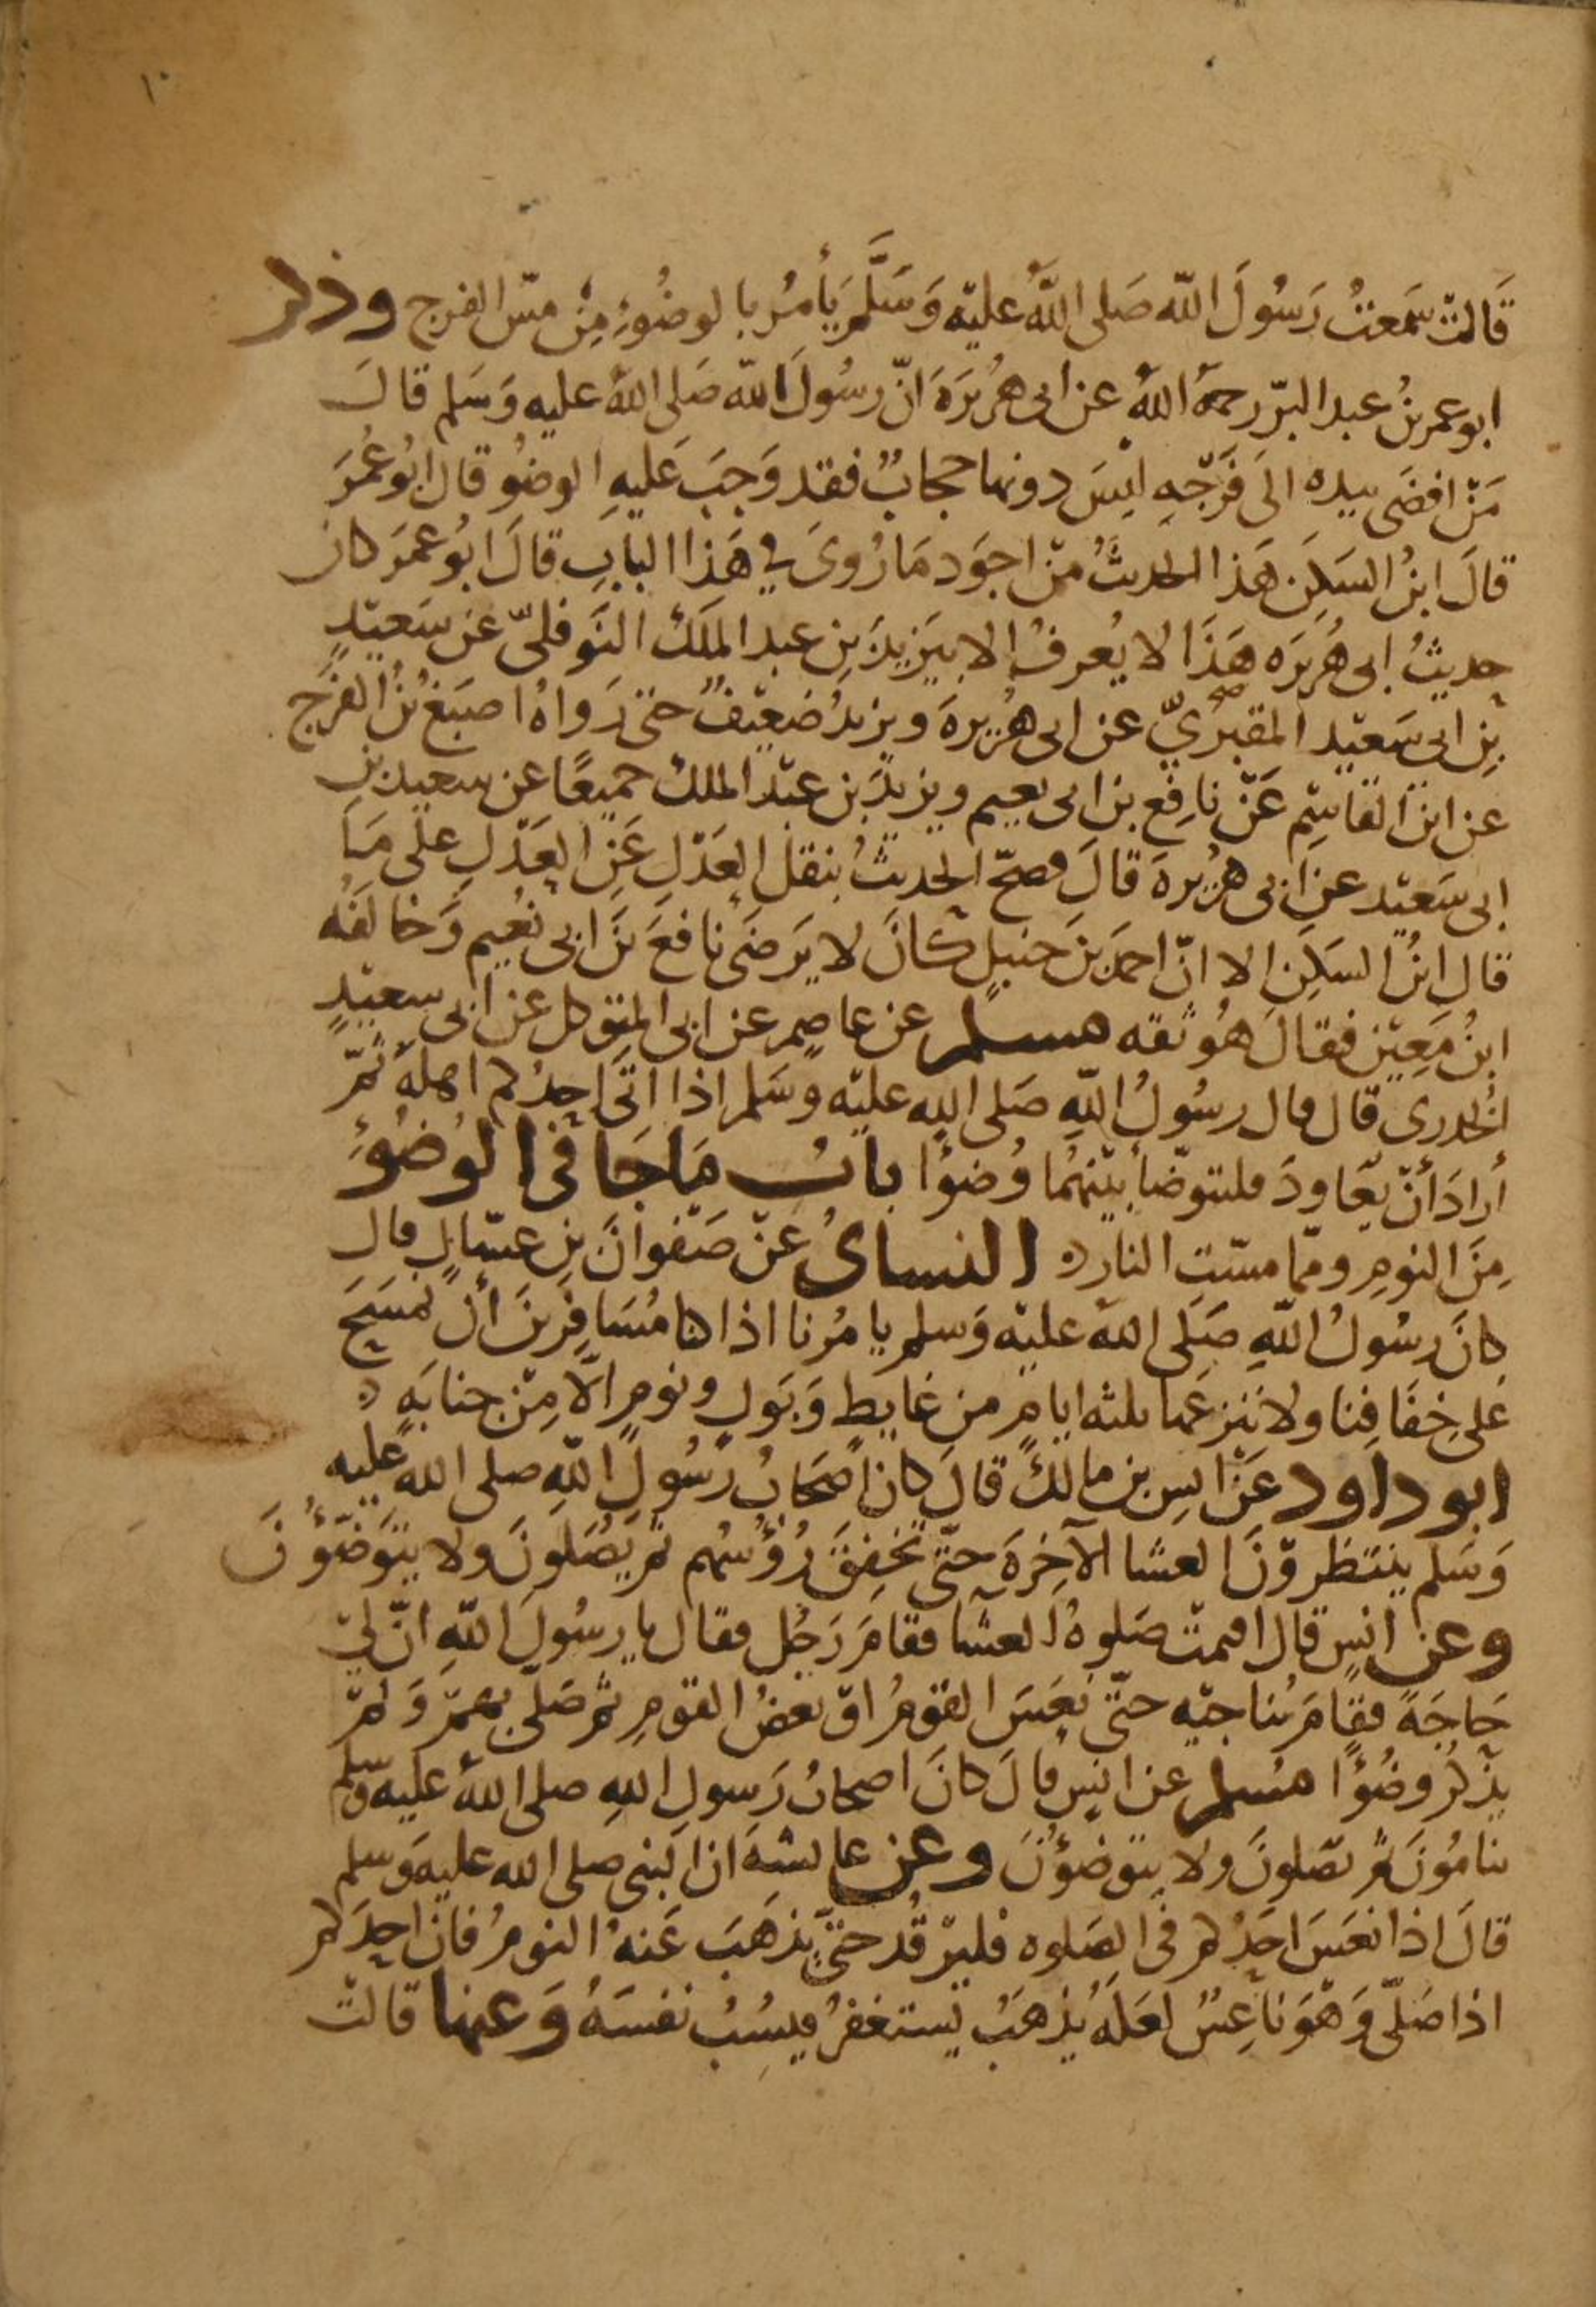 ١٠
قَالتْ سَمعتُ رَسُولَ اللّه صَلى اللّهُ عليْه وَسَلَّمَ يَأمُر بالوضُوءِ مِنْ مسّ الفرج وذكر
ابو عمر بنُ عبد البرّ رحمهُ اللهُ عن ابى هُرَيرَة انّ رسُولَ اللّه صَلى اللهُ عليه وَسَلم قالَ
مَنْ افضَى بيده الَى فَرْجّهِ ليْسَ دونها حجابٌ فقد وَجبَ عَليهِ الوضُو قال ابُو عُمَرَ
قالَ ابنُ السَكَنِ هَذا الحديثُ منْ اجوَد مَا رُوىَ في هَذا البابِ قالَ ابُو عمَر كان
حديثُ ابى هُرَيرَه هَذَا لا يُعرفُ الا بيَزيدَ بنِ عبد الملَك النَوفلىّ عَن سَعيْدٍ
بْنِ ابى سَعيْد المقبُرىّ عن ابى هُرَيرةَ ويزيدُ ضعيْفٌ حتىَ رَواهُ اصبَغ بنُ الفرَج
عن ابن القاسِم عَنْ نافع بن ابى نعيم ويزيدَ بن عبْد الملك جميعًا عن سعيد بنِ
ابى سَعيْد عن ابى هرَيرة قالَ فصحّ الحديثُ بنقل العَدْلِ عَنِ العَدْلِ علَى مَا
قال ابنُ السَكَنِ الا انّ احمدَ بنَ حنبلٍ كانَ لا يَرضَى نافعَ بنَ ابى نُعيم وَخالفَهُ
ابنُ مَعِيْن فقالَ هُو ثقه مسلم عن عاصم عن ابى المتوكل عن ابى سعيْدٍ
الخدرى قال قال رسُولُ اللّهِ صَلى الله عليْه وسَلم اذا اتَى احدُكم اهلَهُ ثُمّ
أرادَ أنْ يعَاودَ فليتوضّأ بيْنهُما وُضوًا بابُ مَا جَا فى الوُضوُء
مِنَ النومِ وممّا مسّتِ النارُ النسائىُ عَنْ صَفْوانَ بْنِ عسّالٍ قال
كانَ رسُولُ اللّهِ صَلَى اللهُ عليْه وَسلم يامُرنا اذا كنا مُسَافِرينَ أنْ نمسَحَ
عَلى خِفافِنا ولا نَنزعَها ثلثه ايامٍ من غايطٍ وَبَولٍ ونومٍ الاّ مِنْ جنابَهٍ
ابو داود عَنْ انسِ بن مالكٍ قالَ كان اصحَابُ رسُولِ اللّهِ صلى الله عليه
وَسَلم ينتظروْنَ العشا الآخِرةَ حتّى تخفِقَ رُؤُسُهم ثم يَصَلونَ ولا يتوَضّؤُنَ
وعن انسٍ قال اقيمتْ صَلوةُ العشا فقامَ رَجُل فقال يا رسُولَ اللّهِ انّ لىْ
حَاجَةً فقَامَ يُناجيْه حتّى نعَسَ القومُ اوْ بعضُ القومِ ثم صَلى بهمْ وَلمْ
يذْكُر وضُوًا مُسلم عن انسٍ قالَ كانَ اصحابُ رَسولِ اللهِ صلى اللهُ عليه وسلم
ينامُونَ ثم يصَلونَ ولا يتوضؤُنَ وعن عايشهَ ان النبى صلى الله عليه وسلم
قالَ اذا نعَسَ احَدُكم فى الصَلوه فليرْقُد حتىّ يذهَبَ عَنهُ النومُ فانّ احدَكم
اذا صَلّى وَهْوَ ناعِسٌ لعَلهُ يذهَبُ يَستغفرُ فيسُبُ نفسَهُ وَعنها قالتْ